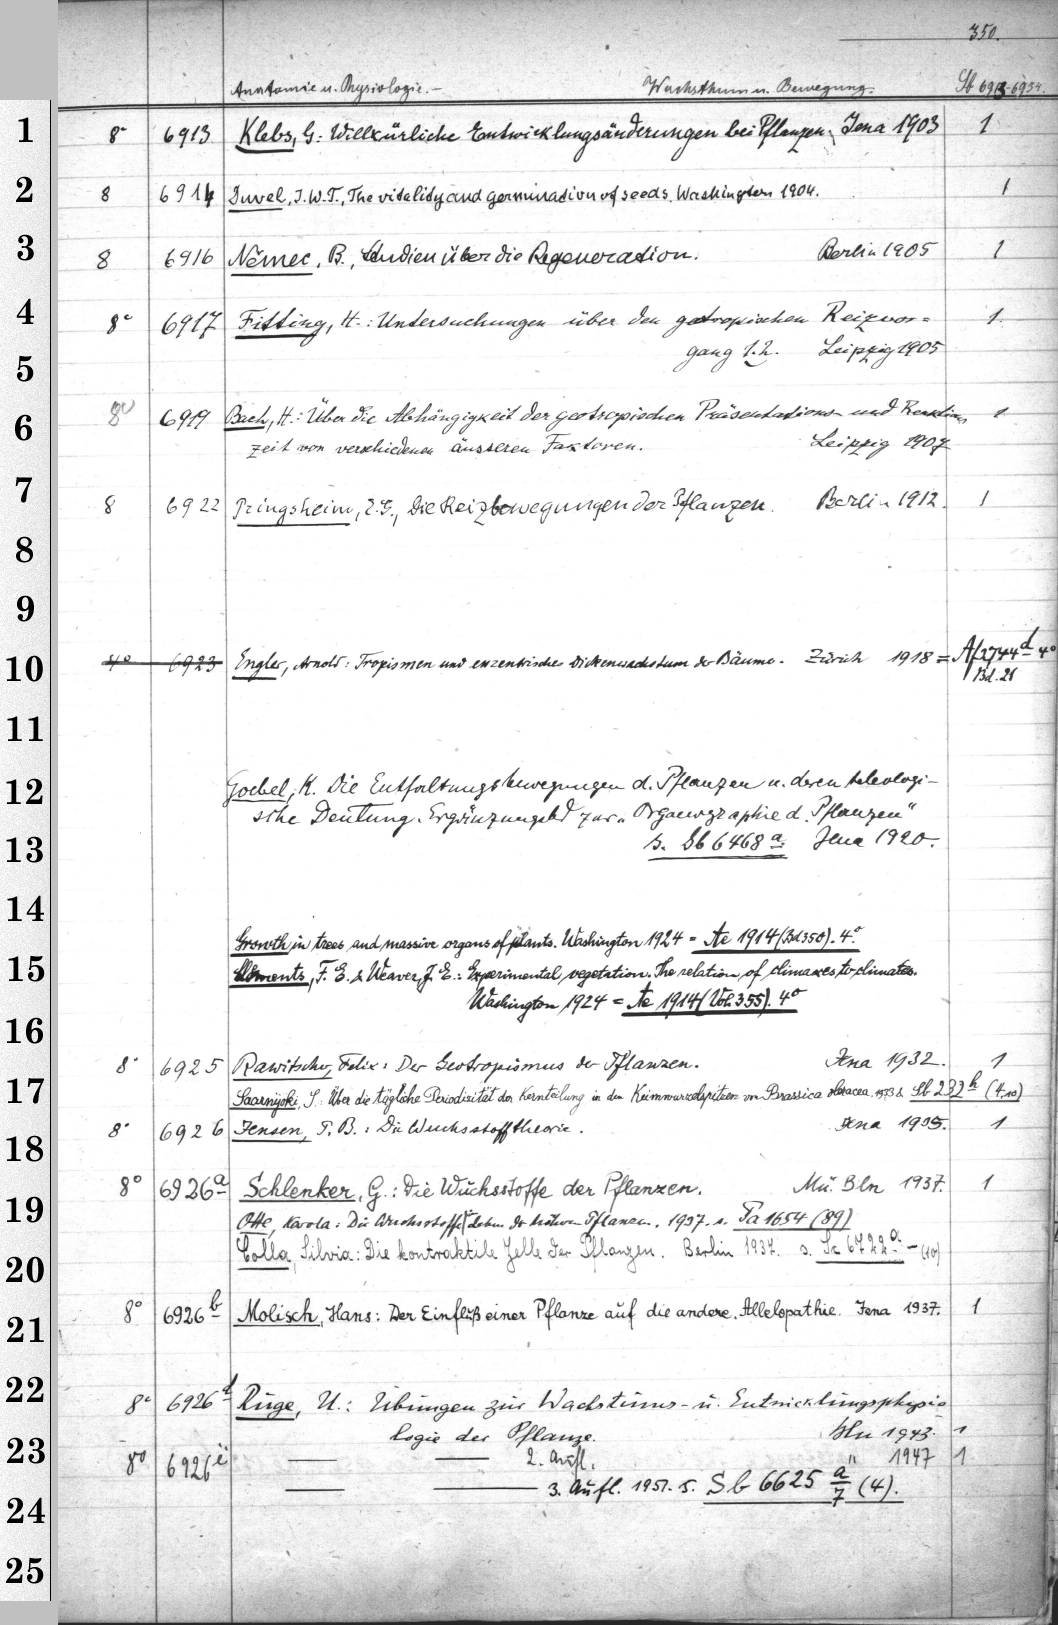 350.
Anatomie u. Physiologie.— Wachsthum u. Bewegung. Sb 6913-6934.
1 8° 6913 Klebs, G.: Willkürliche Entwicklungsänderungen bei Pflanzen. Jena 1903 1
2 8 6914 Duvel, J.W.T., The vitality and germination of seeds. Washington 1904. 1
3 8 6916 Němec, B., Studien über die Regeneration. Berlin 1905 1
4 8° 6917 Fitting, H.: Untersuchungen über den geotropischen Reizvor=
gang 1.2. Leipzig 1905 1.
5
8° 6919 Bach, H.: Über die Abhängigkeit der geotropischen Präsentations- und Reaktions 1
6 zeit von verschiedenen äusseren Faktoren. Leipzig 1907
7 8 6922 Pringsheim, E.G., Die Reizbewegungen der Pflanzen. Berlin 1912. 1
8
9
10 4° 6923 Engler, Arnold: Tropismen und exzentrisches Dickenwachstum der Bäume. Zürich 1918 = Af 2744d 4°
Bd. 21
11
12 Goebel, K. Die Entfaltungsbewegungen d. Pflanzen u. deren teleologi-
sche Deutung. Ergänzungsbd zur „Organographie d. Pflanzen"
13 s. Sb 6468a. Jena 1920.
14
Growth in trees and massive organs of plants. Washington 1924 = Ae 1914 (Bd 350). 4°.
15 Clements, F. E. & Weaver, J. E.: Experimental vegetation. The relation of climaxes to climates.
Washington 1924 = Ae 1914 (Vol. 355). 4°
16
8° 6925 Rawitscher, Felix: Der Geotropismus der Pflanzen. Jena 1932. 1
17 S.: Über die tägliche Periodizität der Kernteilung in den Keimwurzelspitzen von Brassica oleracea. Sb 232h (4.10)
8° 6926 Jensen, P. B.: Die Wuchsstofftheorie. Jena 1935. 1
18
8° 6926a Schlenker, G.: Die Wuchsstoffe der Pflanzen. Mü. Bln 1937. 1
19 Otte, Karola: Die Wuchsstoffe im Leben der höheren Pflanzen. 1937. s. Ta 1654 (89)
Colla, Silvia: Die kontraktile Zelle der Pflanzen. Berlin 1937. s. Sc 6722a - (10)
20
8° 6926b Molisch, Hans: Der Einfluß einer Pflanze auf die andere. Allelopathie. Jena 1937. 1
21
22 8° 6926d Ruge, U.: Übungen zur Wachstums- u. Entwicklungsphysio-
logie der Pflanze. Bln 1943. 1
23 8° 6926ü — — 2. Aufl. " 1947 1
— — 3. Aufl. 1951. s. Sb 6625 a/7 (4).
24
25